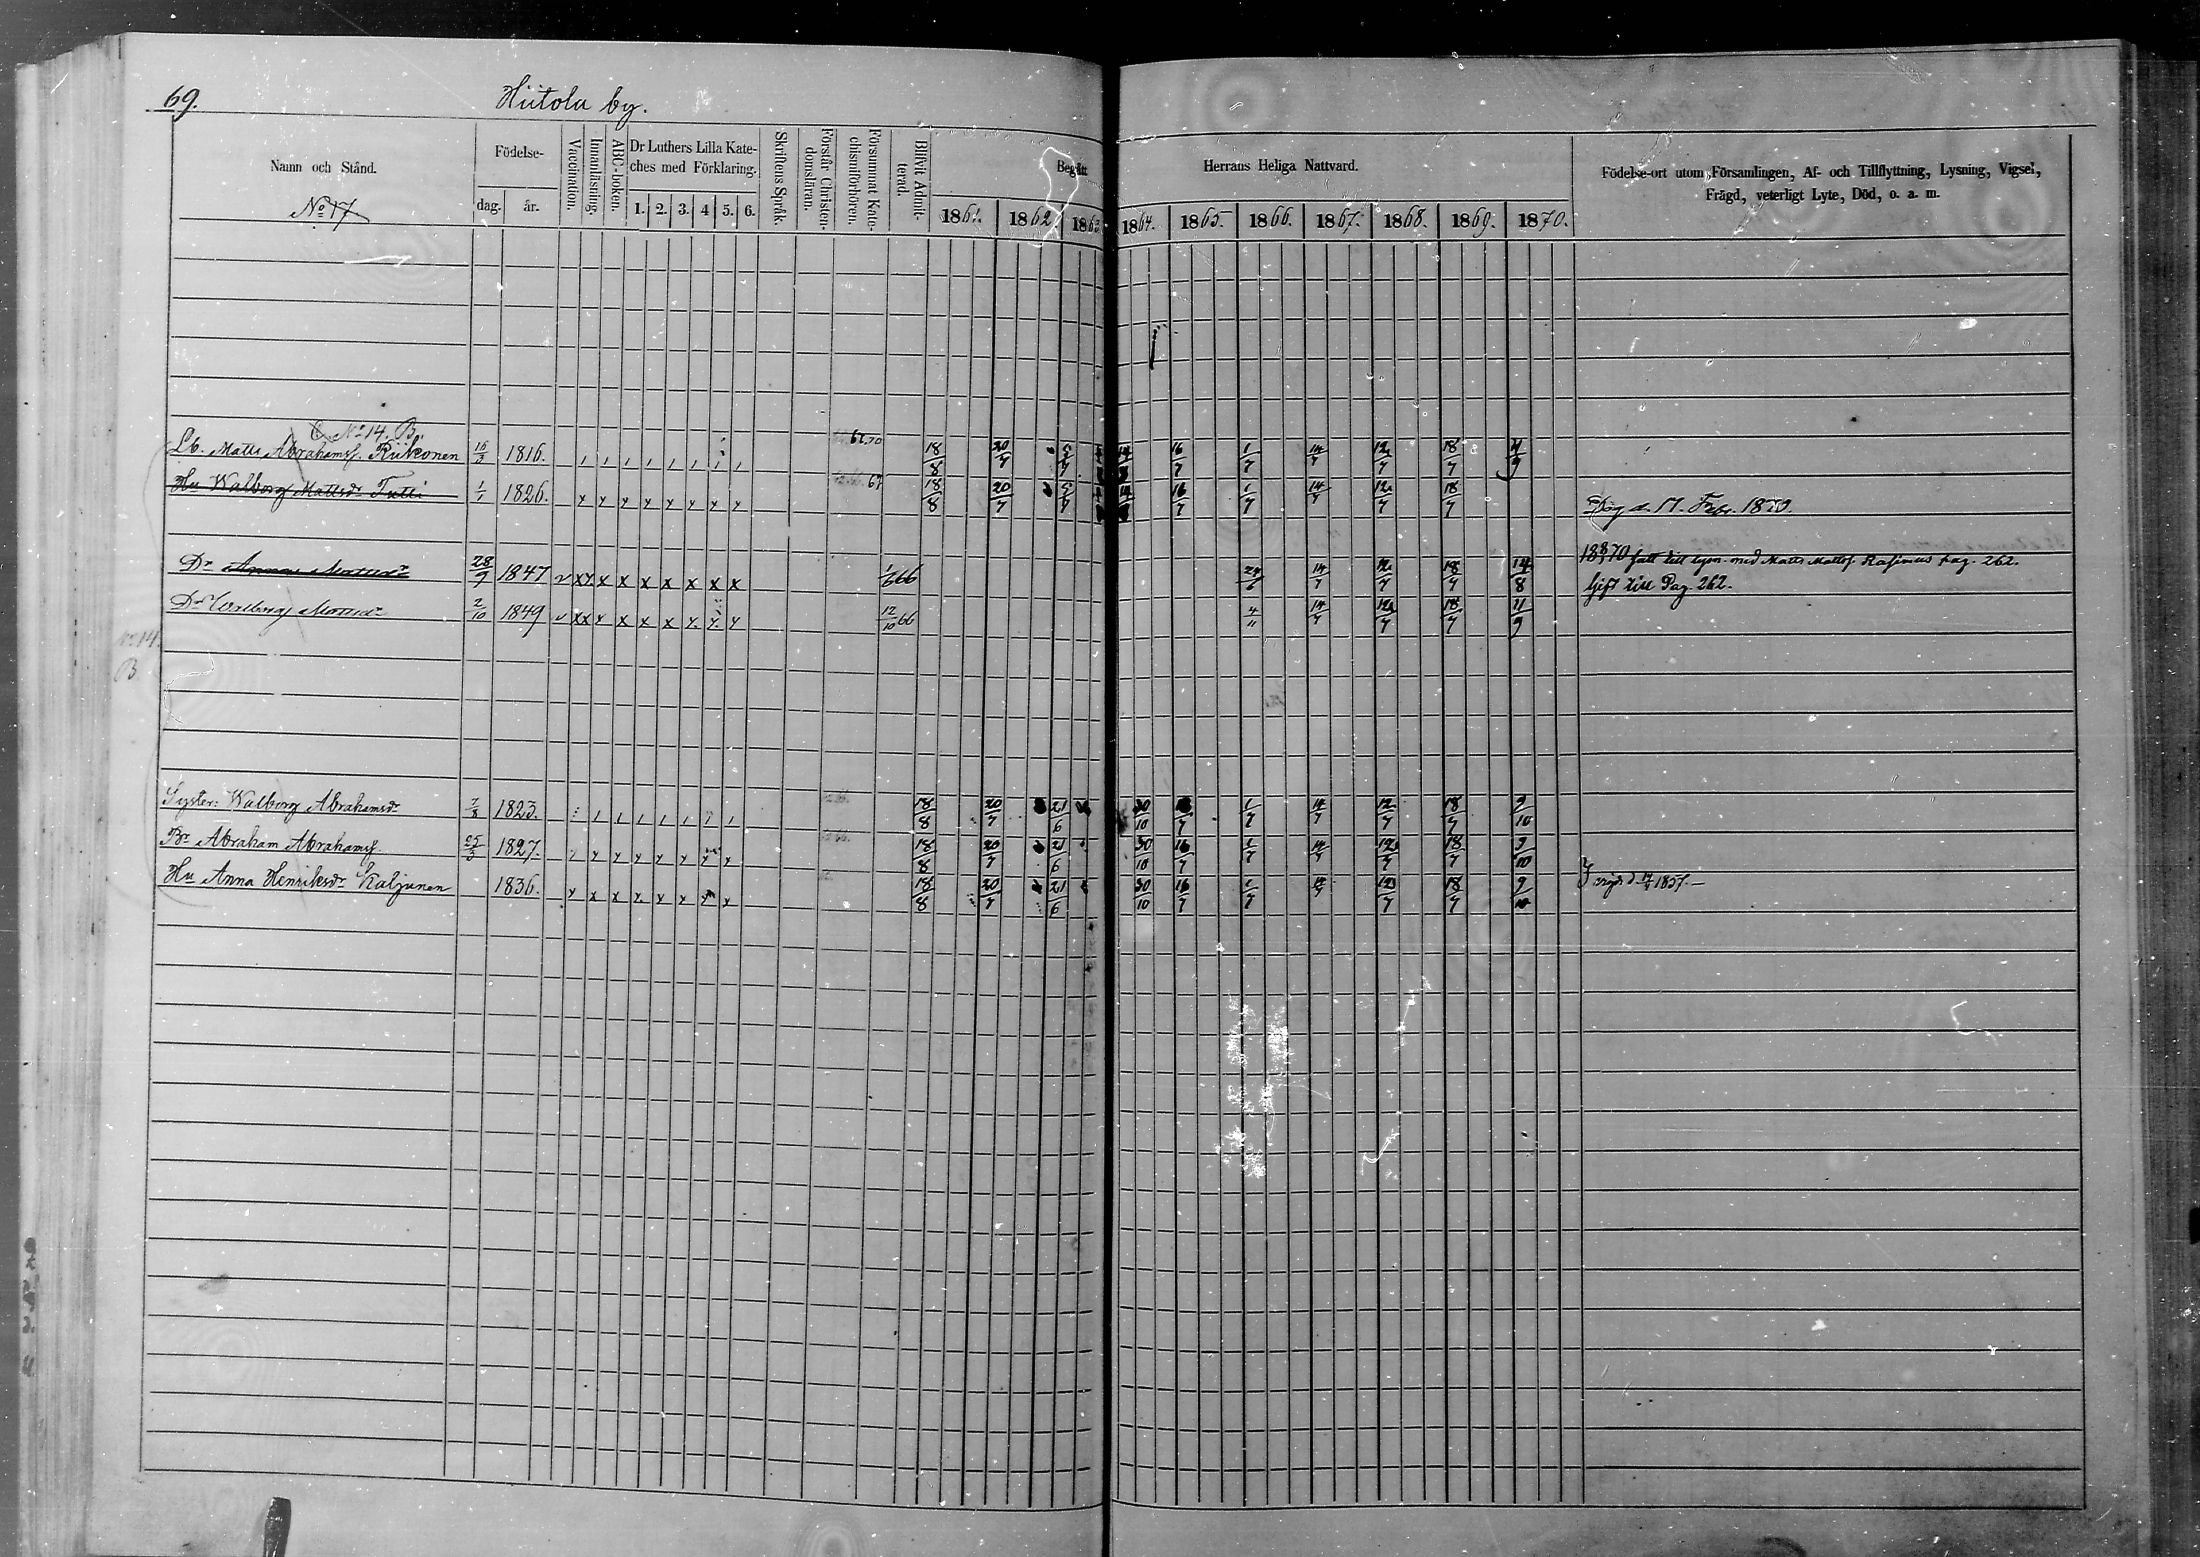 69.
Hiitola by.
Namn och Stånd.
No 17
Födelse-
dag. år.
Vaccination.
Innanläsning.
ABC-boken.
Dr Luthers Lilla Kate-
ches med Förklaring.
1. 2. 3. 4 5. 6.
Skriftens Språk.
Förstår Christen-
domsläran.
Försummat Kate-
chismiförhören.
Blifvit Admit-
terad.
Begått Herrans Heliga Nattvard.
1861. 1862. 1863. 1864. 1865. 1866. 1867. 1868. 1869. 1870.
Födelse-ort utom Församlingen, Af- och Tillflyttning, Lysning, Vigsel,
Frägd, veterligt Lyte, Död, o. a. m.
No 14. B.
Lb. Matts Abrahamss. Riikonen 1816. 18/8 20/7 16/7 1/7 14/7 12/7 18/7
Hu Walborg Mattsdr Tutti 1/1 1826. 67 18/8 20/7 16/7 1/7 14/7 12/7 18/7 Dog d. 17. Febr. 1870.
Dr Annas Mattsdr 28/9 1847 66 14/7 12/7 18/7 14/8 Gift till Pag. 262.
Dr Walborg Mattsdr 2/10 1849 12/10 66 4/11 14/7 12/7 18/7 11/9
No 14.
B.
Syster: Walborg Abrahamsdr 7/8 1823. 18/8 20/7 21/6 30/10 1/7 14/7 12/7 18/7 9/10
Br Abraham Abrahamss. 25/3 1827. 18/8 20/7 21/6 30/10 16/7 1/7 14/7 12/7 18/7 9/10
Hu Anna Henriksdr Kaljunen 1836. 18/8 20/7 21/6 30/10 16/7 1/7 14/7 12/7 18/7 9/10 vigd d. 1857.